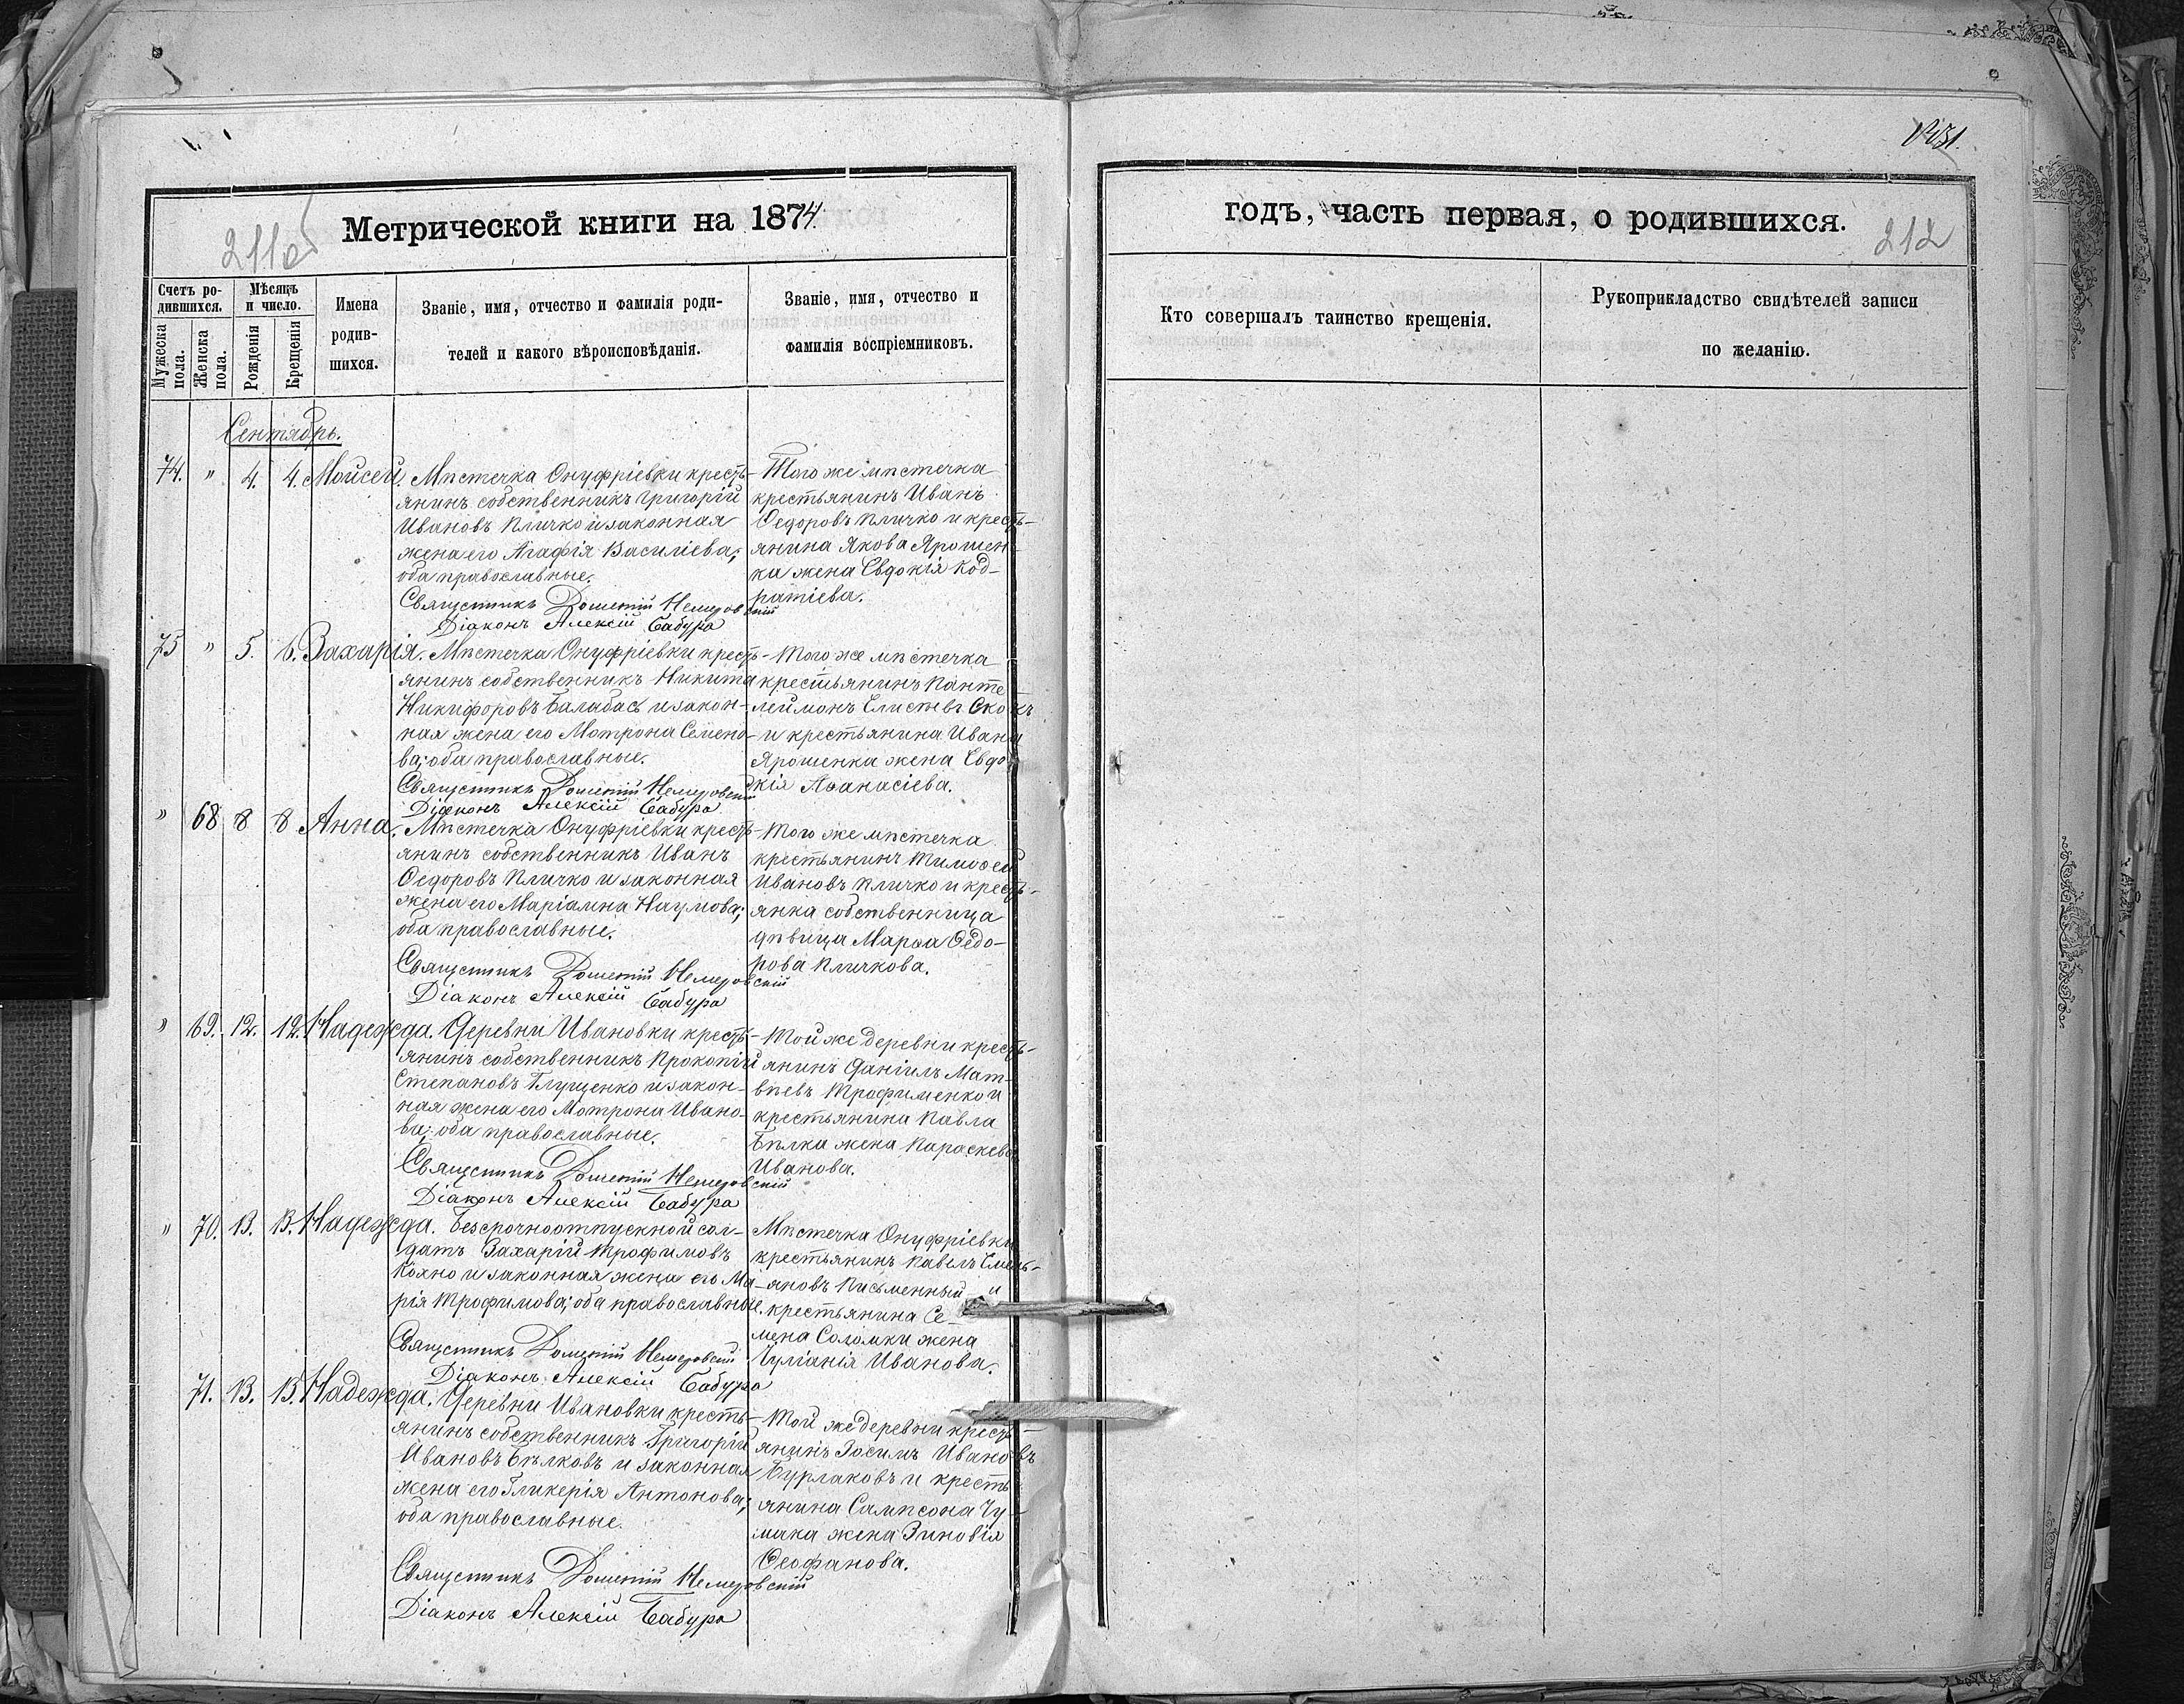 Метрической книги на 1874
211об
Счетъ ро-
дившихся.
Мужеска
пола.
Женска
пола.
Мѣсяцъ
и число.
Рожденія
Крещенія
Имена
родив-
шихся.
Званіе, имя, отчество и фамилія роди-
телей и какого вѣроисповѣданія.
Званіе, имя, отчество и
фамилія воспріемниковъ.
Сентябрь.
74. " 4. 4. Мойсей
Мѣстечка Онуфріевки кресть-
янинъ собственникъ Григорій
Ивановъ Кличко и законная
жена его Агафія Василіева;
оба православные.
Священникъ Дометій Немеровскій
Діаконъ Алексій Бабура
Того же мѣстечка
крестьянинъ Иванъ
Ѳедоровъ Кличко и кресть-
янина Якова Ярошен-
ка жена Евдокія Код-
ратіева.
75 " 5. 6. Захарія.
Мѣстечка Онуфріевки кресть-
янинъ собственникъ Никита
Никифоровъ Балабас и закон-
ная жена его Мотрона Семено-
ва; оба православные.
Священникъ Дометій Немеровскій
Діаконъ Алексій Бабура
Того же мѣстечка
крестьянинъ Панте
леймонъ Елисѣевъ
и крестьянина Ивана
Ярошенка жена Евдо
кія Аѳанасіева.
" 68 8 8 Анна.
Мѣстечка Онуфріевки кресть-
янинъ собственникъ Иванъ
Ѳедоровъ Кличко и законная
жена его Маріамна Наумова;
оба православные.
Священникъ Дометій Немеровскій
Діаконъ Алексій Бабура
Того же мѣстечка
крестьянинъ Тимоѳей
Ивановъ Кличко и кресть-
янка собственница
дѣвица Марѳа Ѳедо-
рова Кличкова.
" 69. 12. 12. Надежда.
Деревни Ивановки кресть-
янинъ собственникъ Прокопій
Степановъ Глущенко и закон-
ная жена его Мотрона Ивано-
ва; оба православные.
Священникъ Дометій Немеровскій
Діаконъ Алексій Бабура
Той же деревни кресть-
янинъ Даніилъ Мат-
вѣевъ Трофименко и
крестьянина Павла
Бѣлка жена Параскева
Иванова.
" 70. 13. 13. Надежда.
Безсрочноотпускной сол-
датъ Захарій Трофимовъ
Кохно и законная жена его Ма-
рія Трофимова; оба православные.
Священникъ Дометій Немеровскій
Діаконъ Алексій Бабура
Мѣстечка Онуфріевки
крестьянинъ Павелъ Емель-
яновъ Письменный и
крестьянина Се-
мена Соломки жена
Іуліанія Иванова.
71. 13. 15. Надежда.
Деревни Ивановки кресть-
янинъ собственникъ Григорій
Ивановъ Бѣлковъ и законная
жена его Гликерія Антонова;
оба православные.
Священникъ Дометій Немеровскій
Діаконъ Алексій Бабура
Той же деревни кресть-
янинъ Зосимъ Ивановъ
Бурлаковъ и кресть
янина Сампсона Чу-
мака жена Зиновія
Ѳеофанова.
годъ, часть первая, о родившихся.
212
Кто совершалъ таинство крещенія.
Рукоприкладство свидѣтелей записи
по желанію.